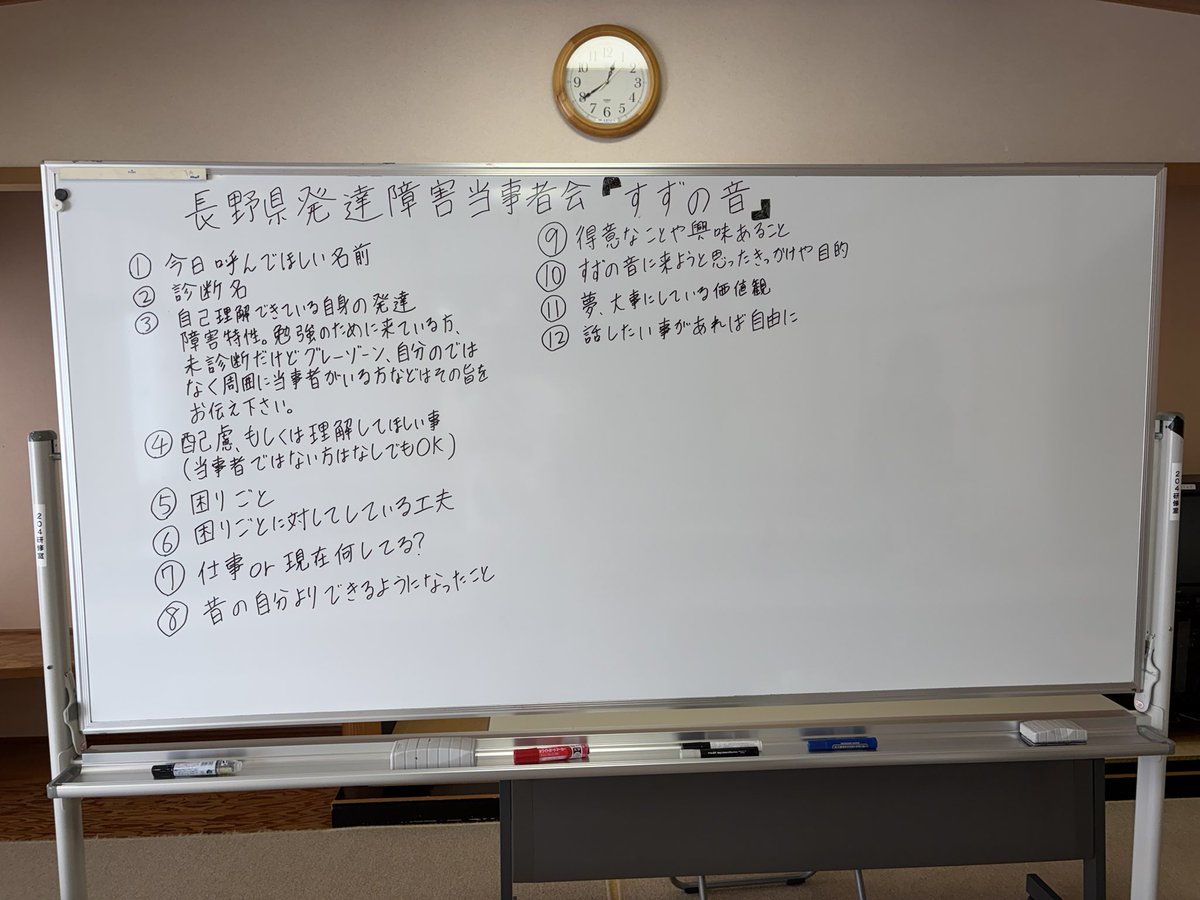 長野県発達障害当事者会『すずの音』
① 今日呼んでほしい名前
② 診断名
③ 自己理解できている自身の発達
障害特性。勉強のために来ている方、
未診断だけどグレーゾーン、自分のでは
なく周囲に当事者がいる方などはその旨を
お伝え下さい。
④ 配慮、もしくは理解してほしい事
(当事者ではない方はなしでもOK)
⑤ 困りごと
⑥ 困りごとに対してしている工夫
⑦ 仕事or現在何してる?
⑧ 昔の自分よりできるようになったこと
⑨ 得意なことや興味あること
⑩ すずの音に来ようと思ったきっかけや目的
⑪ 夢、大事にしている価値観
⑫ 話したい事があれば自由に
204研修室
204研修室
12
1
2
3
4
5
6
7
8
9
10